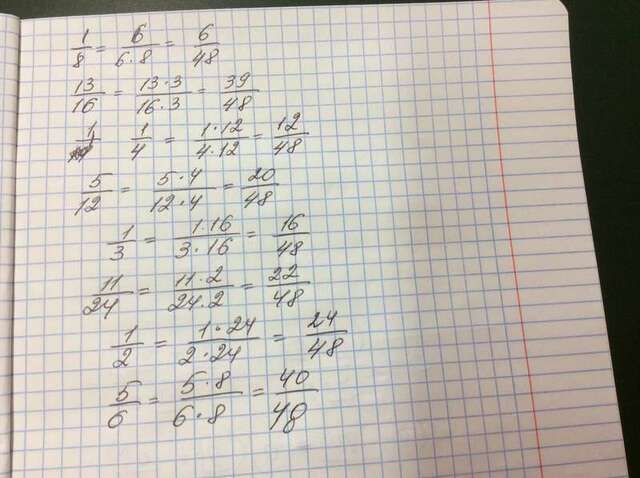 1/8 = 6/6·8 = 6/48
13/16 = 13·3/16·3 = 39/48
1/4 = 1·12/4·12 = 12/48
5/12 = 5·4/12·4 = 20/48
1/3 = 1·16/3·16 = 16/48
11/24 = 11·2/24·2 = 22/48
1/2 = 1·24/2·24 = 24/48
5/6 = 5·8/6·8 = 40/48